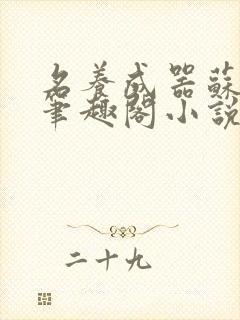 名養成器蘇
筆趣閣小說
二十九